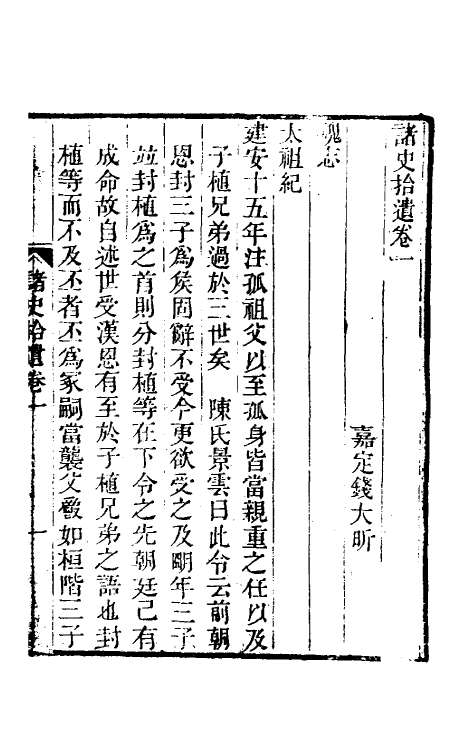 諸史拾遺卷一
嘉定錢大昕
魏志
太祖紀
建安十五年注孤祖父以至孤身皆當親重之任以及
子植兄弟過於三世矣 陳氏景雲曰此令云前朝
恩封三子爲侯固辭不受今更欲受之及明年三子
並封植爲之首則分封植等在下令之先朝廷已有
成命故自述世受漢恩有至於子植兄弟之語也封
植等而不及丕者丕爲冢嗣當襲父爵如桓階三子
諸史拾遺卷一
一